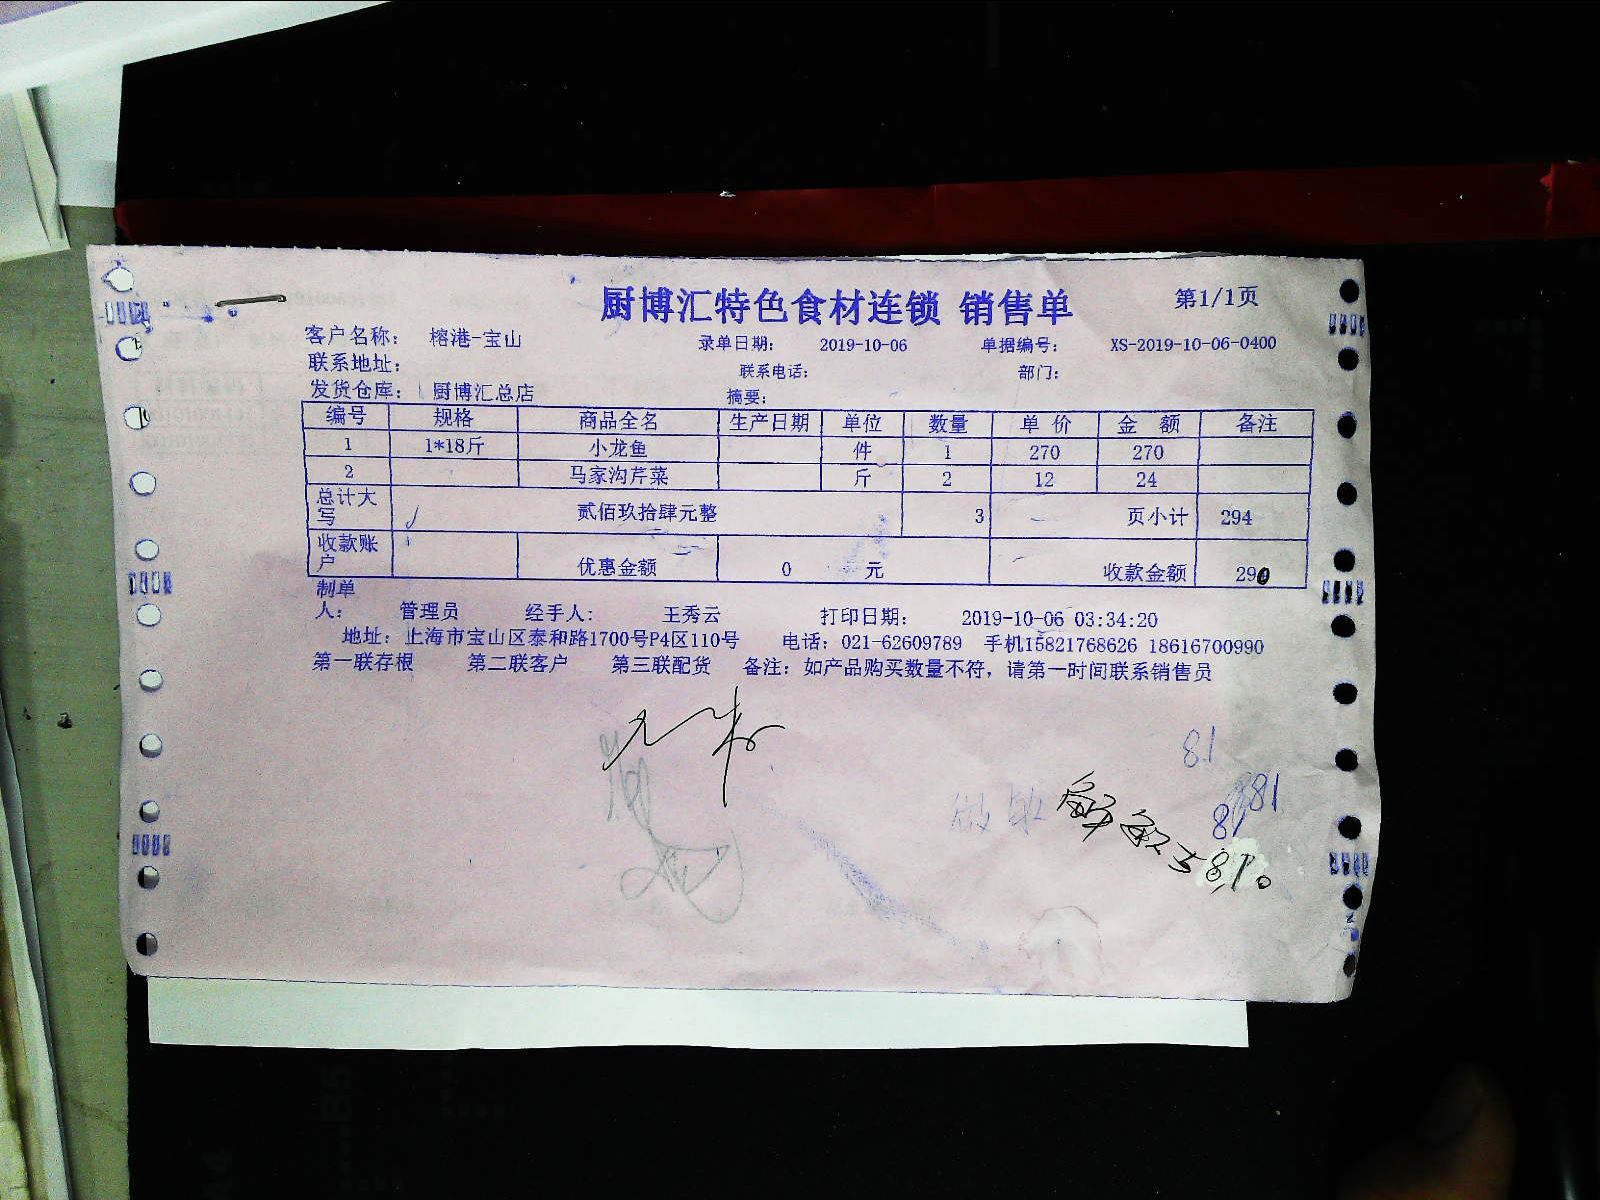 厨博汇特色食材连锁 销售单 第1/1页
客户名称： 榕港-宝山 录单日期： 2019-10-06 单据编号： XS-2019-10-06-0400
联系地址： 联系电话： 部门：
发货仓库： 厨博汇总店 摘要：
编号 规格 商品全名 生产日期 单位 数量 单 价 金 额 备注
1 1*18斤 小龙鱼 件 1 270 270
2 马家沟芹菜 斤 2 12 24
总计大写 贰佰玖拾肆元整 3 页小计 294
收款账户 优惠金额 0 元 收款金额 290
制单人： 管理员 经手人： 王秀云 打印日期： 2019-10-06 03:34:20
地址：上海市宝山区泰和路1700号P4区110号 电话：021-62609789 手机15821768626 18616700990
第一联存根 第二联客户 第三联配货 备注：如产品购买数量不符，请第一时间联系销售员
81
81
81